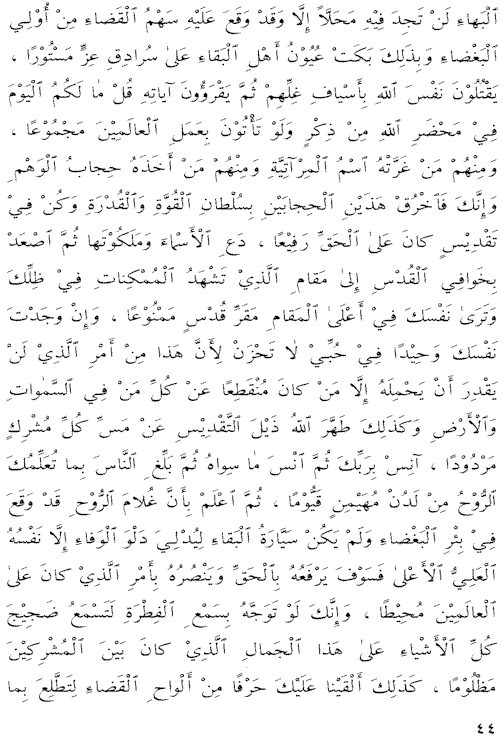 ٱلْبَهاءِ لَنْ تَجِدَ فِيْهِ مَحَلّاً إِلَّا وَقَدْ وَقَعَ عَلَيْهِ سَهْمُ ٱلْقَضاءِ مِنْ أُوْلِي
ٱلْبَغْضاءِ وَبِذلِكَ بَكَتْ عُيُوْنُ أَهْلِ ٱلْبَقاءِ عَلىٰ سُرادِقِ عِزٍّ مَسْتُوْرًا ،
يَقْتُلُوْنَ نَفْسَ ٱللهِ بِأَسْيافِ غِلِّهِمْ ثُمَّ يَقْرَؤُوْنَ آياتِهِ قُلْ مٰا لَكُمُ ٱلْيَوْمَ
فِيْ مَحْضَرِ ٱللهِ مِنْ ذِكْرٍ وَلَوْ تَأْتُوْنَ بِعَمَلِ ٱلْعالَمِيْنَ مَجْمُوْعًا ،
وَمِنْهُمْ مَنْ غَرَّتْهُ ٱسْمُ ٱلْمِرْآتِيَّةِ وَمِنْهُمْ مَنْ أَخَذَهُ حِجابُ ٱلْوَهْمِ
وَإِنَّكَ فَٱخْرُقْ هٰذَيْنِ ٱلْحِجابَيْنِ بِسُلْطانِ ٱلْقُوَّةِ وَٱلْقُدْرَةِ وَكُنْ فِيْ
تَقْدِيْسٍ كانَ عَلىٰ ٱلْحَقِّ رَفِيْعًا ، دَعِ ٱلْأَسْمآءَ وَمَلَكُوْتَها ثُمَّ ٱصْعَدْ
بِخَوافِي ٱلْقُدْسِ إِلىٰ مَقامِ ٱلَّذِيْ تَشْهَدُ ٱلْمُمْكِناتِ فِيْ ظِلِّكَ
وَتَرىٰ نَفْسَكَ فِيْ أَعْلَى ٱلْمَقامِ مَقَرِّ قُدْسٍ مَمْنُوْعًا ، وَإِنْ وَجَدْتَ
نَفْسَكَ وَحِيْدًا فِيْ حُبِّيْ لا تَحْزَنْ لِأَنَّ هَذا مِنْ أَمْرِ ٱلَّذِيْ لَنْ
يَقْدِرَ أَنْ يَحْمِلَهُ إِلَّا مَنْ كانَ مُنْقَطِعًا عَنْ كُلِّ مَنْ فِي ٱلسَّمٰواتِ
وَٱلْأَرْضِ وَكَذلِكَ طَهَّرَ ٱللهُ ذَيْلَ ٱلتَّقْدِيْسِ عَنْ مَسِّ كُلِّ مُشْرِكٍ
مَرْدُوْدًا ، آنِسْ بِرَبِّكَ ثُمَّ ٱنْسَ مٰا سِواهُ ثُمَّ بَلِّغِ ٱلنَّاسَ بِما تُعَلِّمُكَ
ٱلرُّوْحُ مِنْ لَدُنْ مُهَيْمِنٍ قَيُّوْمًا ، ثُمَّ ٱعْلَمْ بِأَنَّ غُلامَ ٱلرُّوْحِ قَدْ وَقَعَ
فِيْ بِئْرِ ٱلْبَغْضاءِ وَلَمْ يَكُنْ سَيَّارَةُ ٱلْبَقاءِ لِيُدْلِيَ دَلْوَ ٱلْوَفاءِ إِلَّا نَفْسُهُ
ٱلْعَلِيُّ ٱلْأَعْلىٰ فَسَوْفَ يَرْفَعُهُ بِٱلْحَقِّ وَيَنْصُرُهُ بِأَمْرِ ٱلَّذِيْ كانَ عَلىٰ
ٱلْعالَمِيْنَ مُحِيْطًا ، وَإِنَّكَ لَوْ تَوَجَّهُ بِسَمْعِ ٱلْفِطْرَةِ لَتَسْمَعُ ضَجِيْجَ
كُلِّ ٱلْأَشْياءِ عَلىٰ هَذا ٱلْجَمالِ ٱلَّذِيْ كانَ بَيْنَ ٱلْمُشْرِكِيْنَ
مَظْلُوْمًا ، كَذلِكَ أَلْقَيْنا عَلَيْكَ حَرْفًا مِنْ أَلْواحِ ٱلْقَضاءِ لِتَطَّلِعَ بِما
٤٤